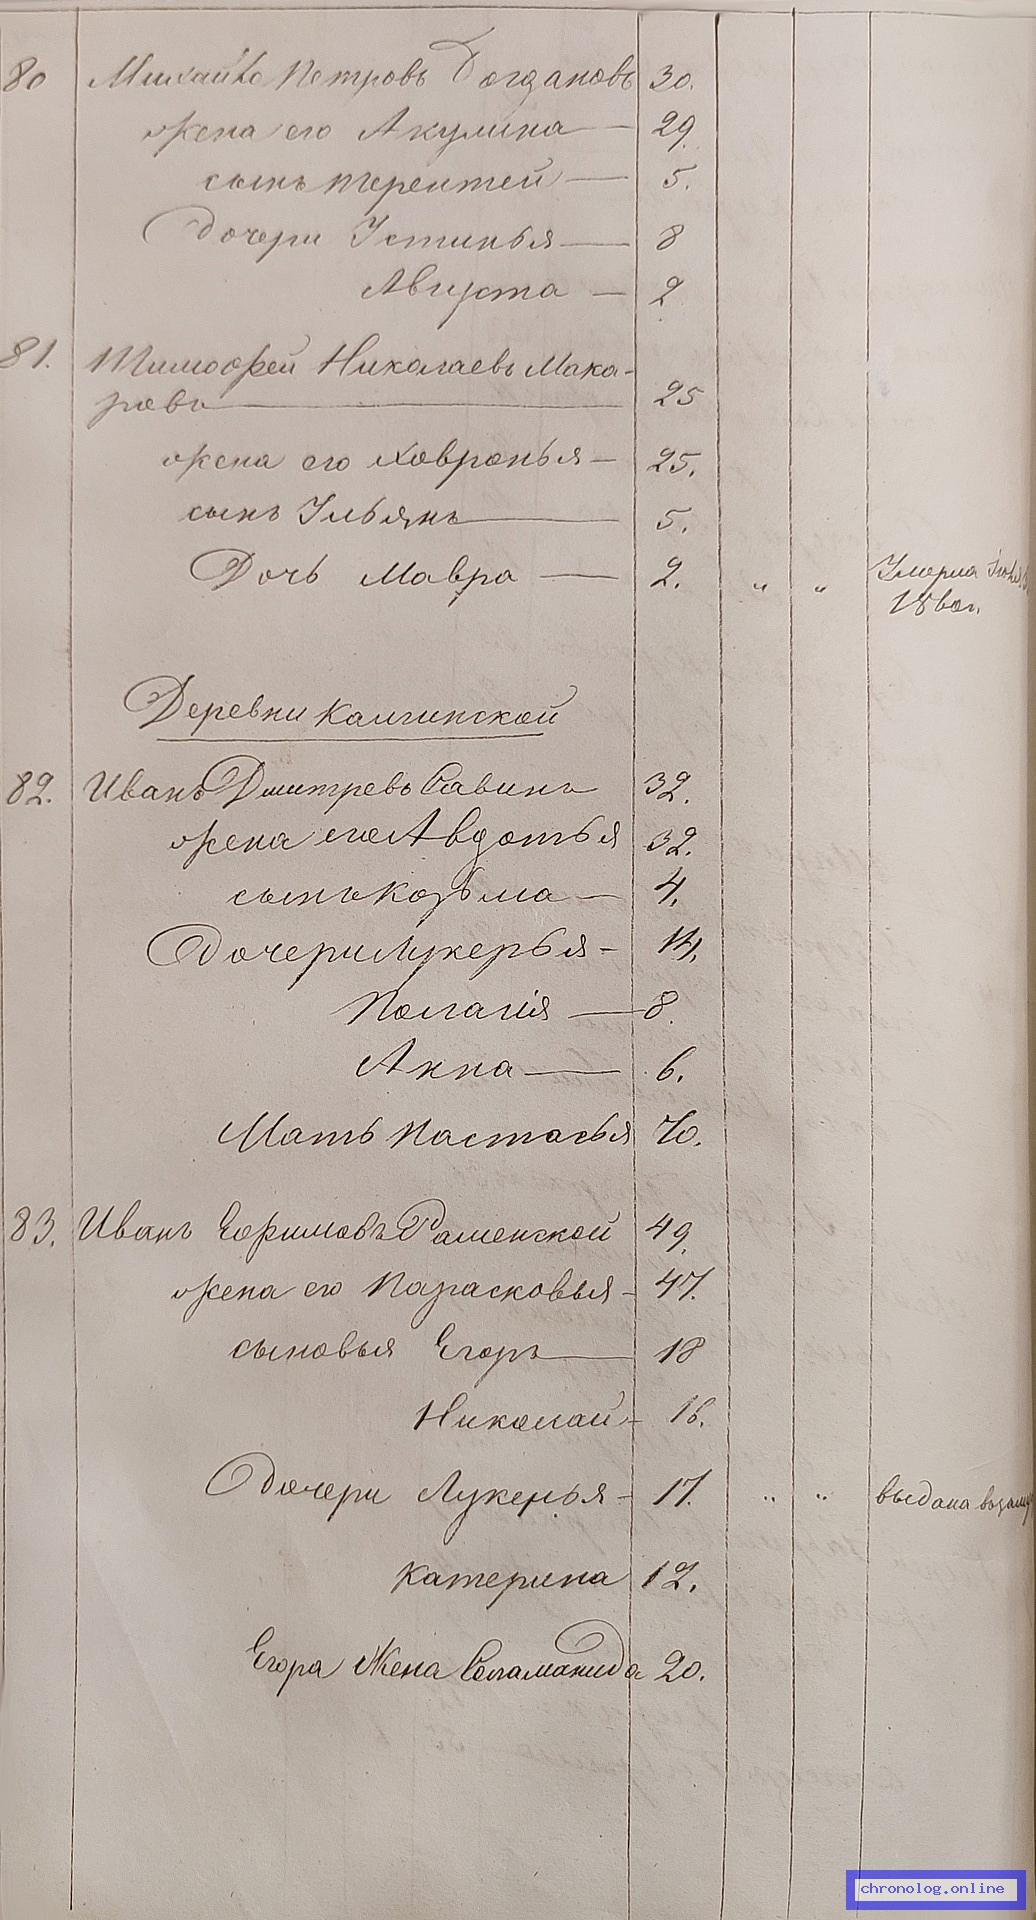 80 Михайло Петровъ Богдановъ 30.
жена его Акулина — 29.
сынъ терентей — 5.
Дочери Устинья — 8
Августа — 2
81. Тимофей Николаевъ Мака-
ровъ — 25
жена его Ховронья — 25.
сынъ Ульянъ — 5.
Дочь Мавра — 2. „ „ Умерла
18 вог.
Деревни Калгинской
82. Иванъ Дмитревъ Савинъ 32.
жена его Авдотья 32.
сынъ Козьма — 4.
Дочери лукерья - 14.
Полагія — 8.
Анна — 6.
Мать Настасья 70.
83. Иванъ Ефимовъ Раменской 49.
жена его Парасковья - 47.
сыновья Егоръ — 18
Николай - 16.
Дочери Лукерья - 17. „ „ выдана
Катерина 12.
Егора Жена Соламанида 20.
chronolog.online